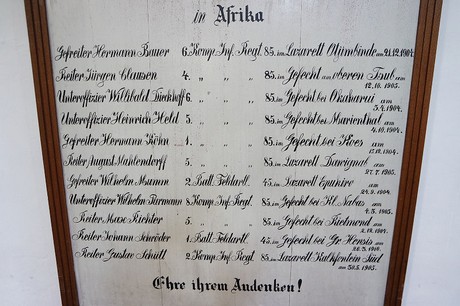 in Afrika
Gefreiter Hermann Bauer 6. Komp. Inf. Regt. 85. im Lazarett Otjimbinde am 21.12.1904.
Reiter Jürgen Claussen 4. „ „ 85. im Gefecht am oberen Tsub am 12.10.1905.
Unteroffizier Willibald 6. „ „ 85. im Gefecht bei Okaharui am 3.4.1904.
Unteroffizier Heinrich Held 5. „ „ 85. im Gefecht bei Marienthal am 4.10.1904.
Gefreiter Hermann Kühn 1. „ „ 85. im Gefecht bei am
Reiter August Mahlendorff 5. „ „ 85. im Lazarett am 27.7.1905.
Gefreiter Wilhelm 2. Batl. Feldartl. 45. im Lazarett Epukiro am 24.9.1904.
Unteroffizier Wilhelm 8. Komp. Inf. Regt. 85. im Gefecht bei Kl. Nabas am 4.5.1905.
Reiter Max Richter 5. „ „ 85. im Gefecht bei Rietmond am
Reiter Johann Schröder 1. Batl. Feldartl. 45. im Gefecht bei Gr. am
Reiter Gustav Schütt 2. Komp. Inf. Regt. 85. im Lazarett Kalkfontein Süd am 30.5.1905.
Ehre ihrem Andenken!